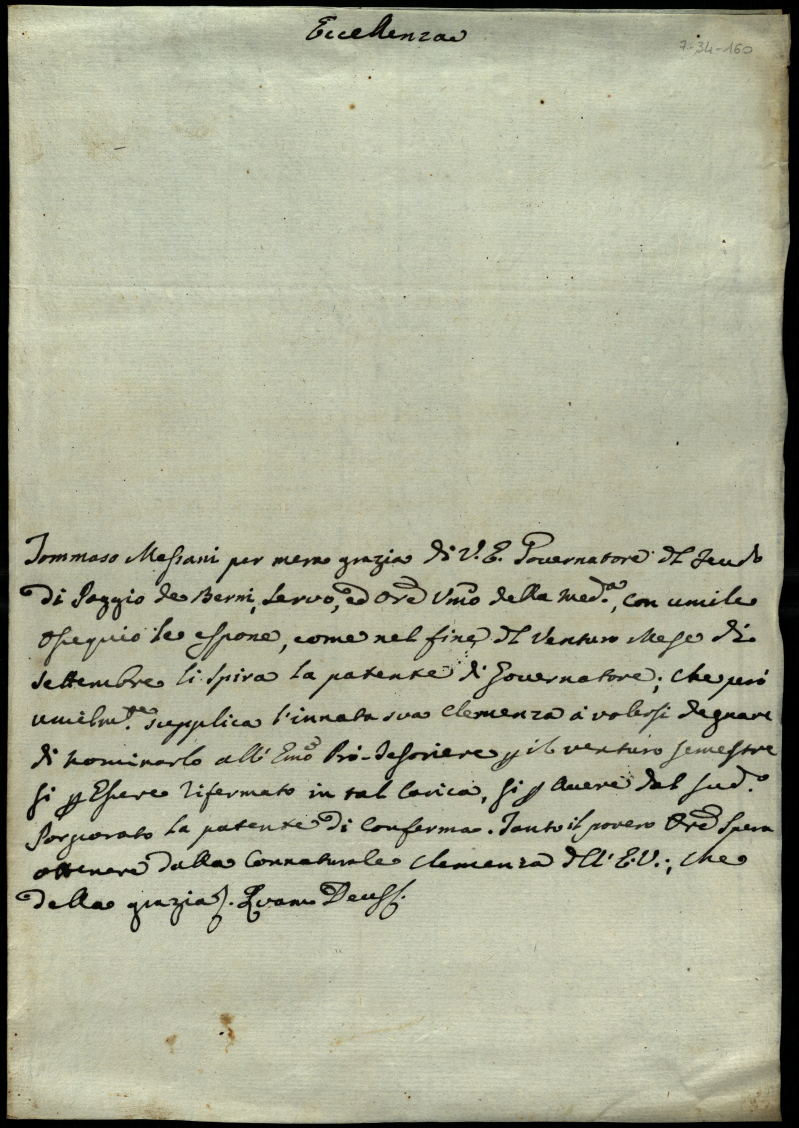 Eccellenza
7-34-160
Tommaso Massani per mera grazia di V. E. Governatore del Feudo
di Poggio de Berni, servo, ed Ore Umo della Med.a, con umile
osequio le espone, come nel fine del venturo Mese di
settembre li spira la patente di Governatore; che però
umilm.te supplica l'innata sua clemenza a volersi degnare
di nominarlo all' Emo Pro-Tesoriere p il venturo semestre
si p Essere rifermato in tal Carica, si p Avere dal sud.o
Porporato la patente di Conferma. Tanto il povero Ore spera
ottenere dalla Connaturale clemenza dell' E. V.; che
della grazia. Quam Deus